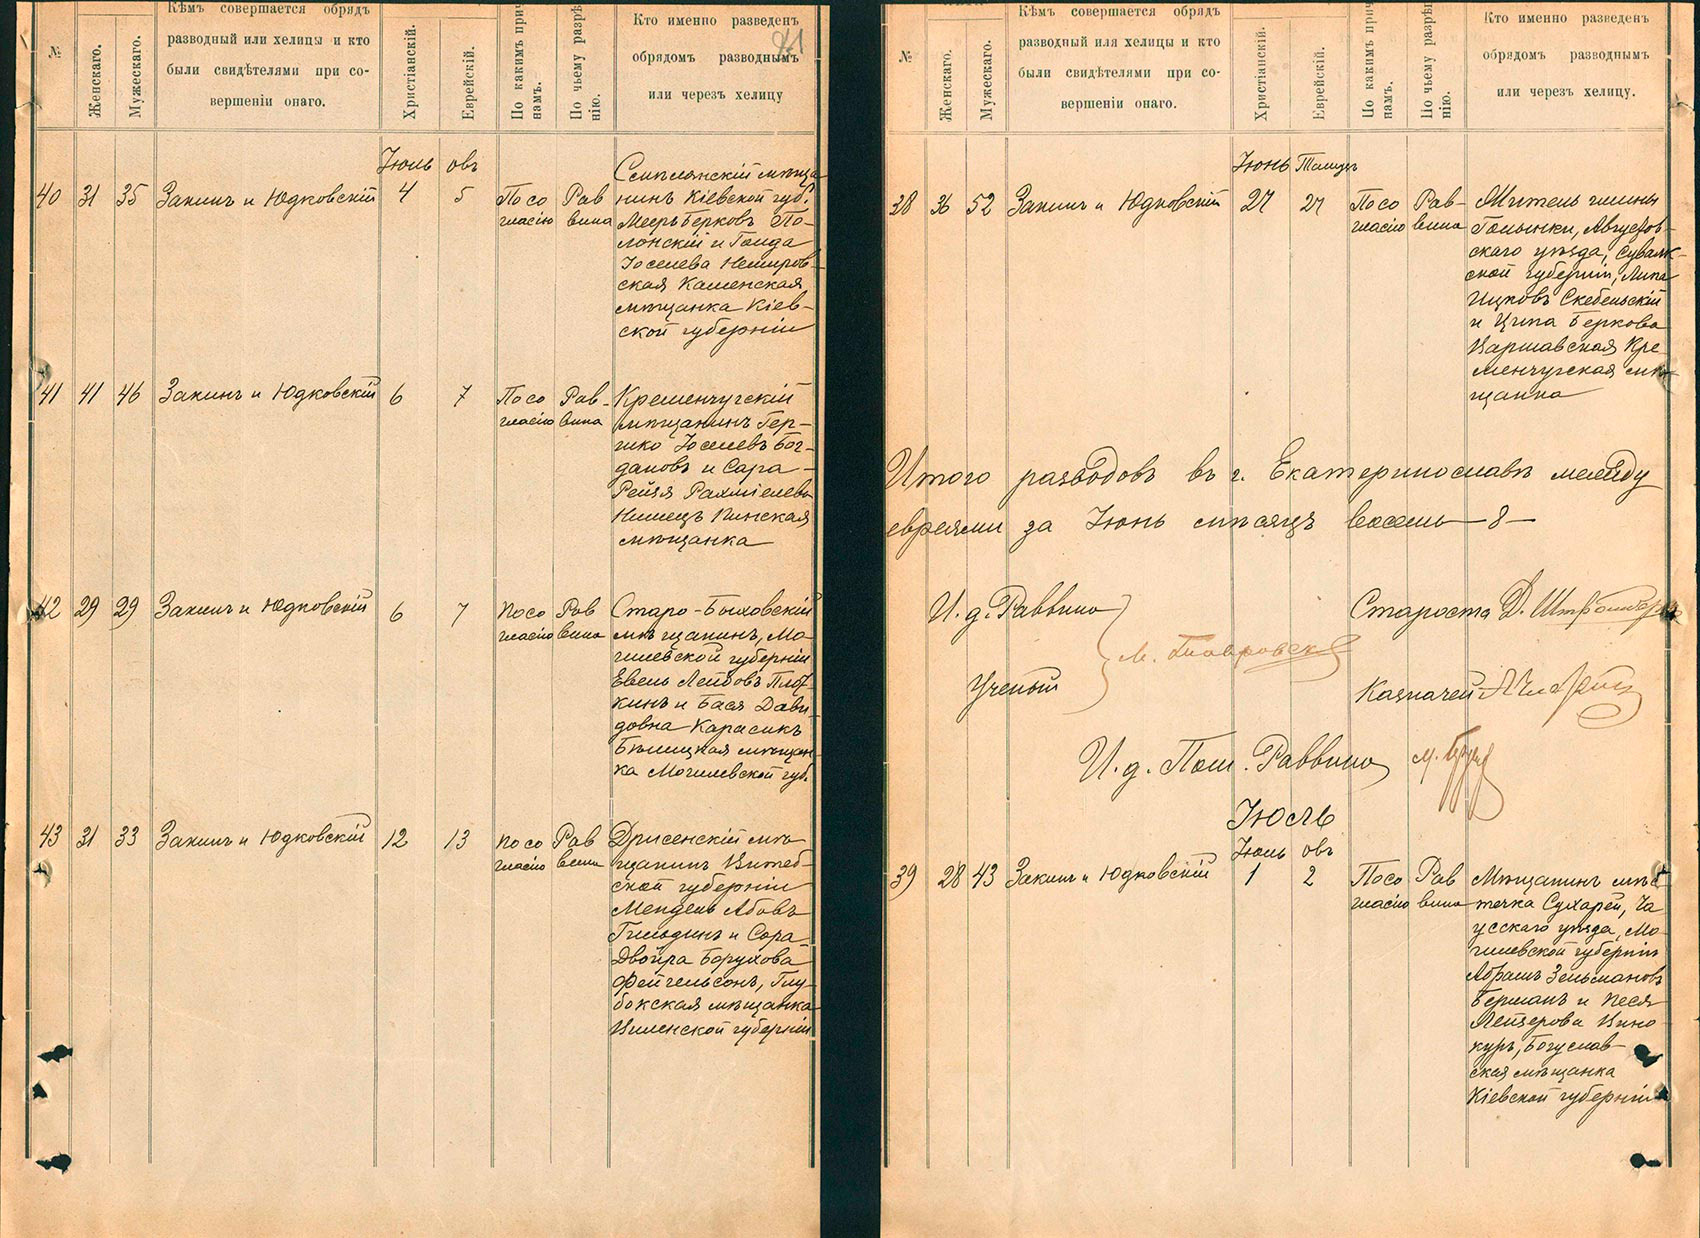 №
Женскаго.
Мужескаго.
Кѣмъ совершается обрядъ
разводный или хелицы и кто
были свидѣтелями при со-
вершеніи онаго.
Христіанскій.
Еврейскій.
По какимъ прич
намъ.
По чьему разрѣ
нію.
Кто именно разведенъ
обрядомъ разводнымъ
или черезъ хелицу
Іюль овъ
40 31 35 Закинъ и Юдковскій 4 5
По со
гласію
Рав
вина
мѣща
нинъ Кіевской губ.
Мееръ Берковъ По-
лонскій и Голда
Іоселева Немиров-
ская Каменская
мѣщанка Кіев-
ской губерніи
41 41 46 Закинъ и Юдковскій 6 7
По со
гласію
Рав-
вина
Кременчугскій
мѣщанинъ Гер-
шко Іоселевъ Бог-
дановъ и Сара-
Рейзя Рахміелева
Нимецъ Пинская
мѣщанка
42 29 29 Закинъ и Юдковскій 6 7
По со
гласію
Рав
вина
Старо-Быховскій
мѣщанинъ, Мо-
гилевской губерніи
Евель Лейбовъ Плот-
кинъ и Бася Дави
довна Карасикъ
Бѣлицкая мѣщан-
ка Могилевской губ.
43 31 33 Закинъ и Юдковскій 12 13
По со
гласію
Рав
вина
Дрисенскій мѣ-
щанинъ Витеб-
ской губерніи
Мендель Абовъ
Гильдинъ и Сора-
Двойра Борухова
Фейгельсонъ, Глу-
бокская мѣщанка
Виленской губерніи
№
Женскаго.
Мужескаго.
Кѣмъ совершается обрядъ
разводный или хелицы и кто
были свидѣтелями при со-
вершеніи онаго.
Христіанскій.
Еврейскій.
По какимъ прич
намъ.
По чьему разрѣ
нію.
Кто именно разведенъ
обрядомъ разводнымъ
или черезъ хелицу.
Іюнь Тамузъ
38 36 52 Закинъ и Юдковскій 27 27
По со
гласію
Рав-
вина
Житель гмины
Голынки, Августов-
скаго уѣзда, Сувалк-
ской губерніи, Липа
Ицковъ Скебельскій
и Ципа Беркова
Варшавская Кре
менчугская мѣ-
щанка
Итого разводовъ въ г. Екатеринославѣ между
евреями за Іюнь мѣсяцъ восемь — 8 —
И. д. Раввина
Староста Д.
Ученый
Казначей
И. д. Пом. Раввина
Іюль
Іюль овъ
39 28 43 Закинъ и Юдковскій 1 2
По со
гласію
Рав
вина
Мѣщанинъ мѣс
течка Сухарей, Ча
усскаго уѣзда, Мо-
гилевской губерніи
Абрамъ Зельмановъ
Берманъ и Песя
Лейзерова Вино-
куръ, Богуслав-
ская мѣщанка
Кіевской губерніи